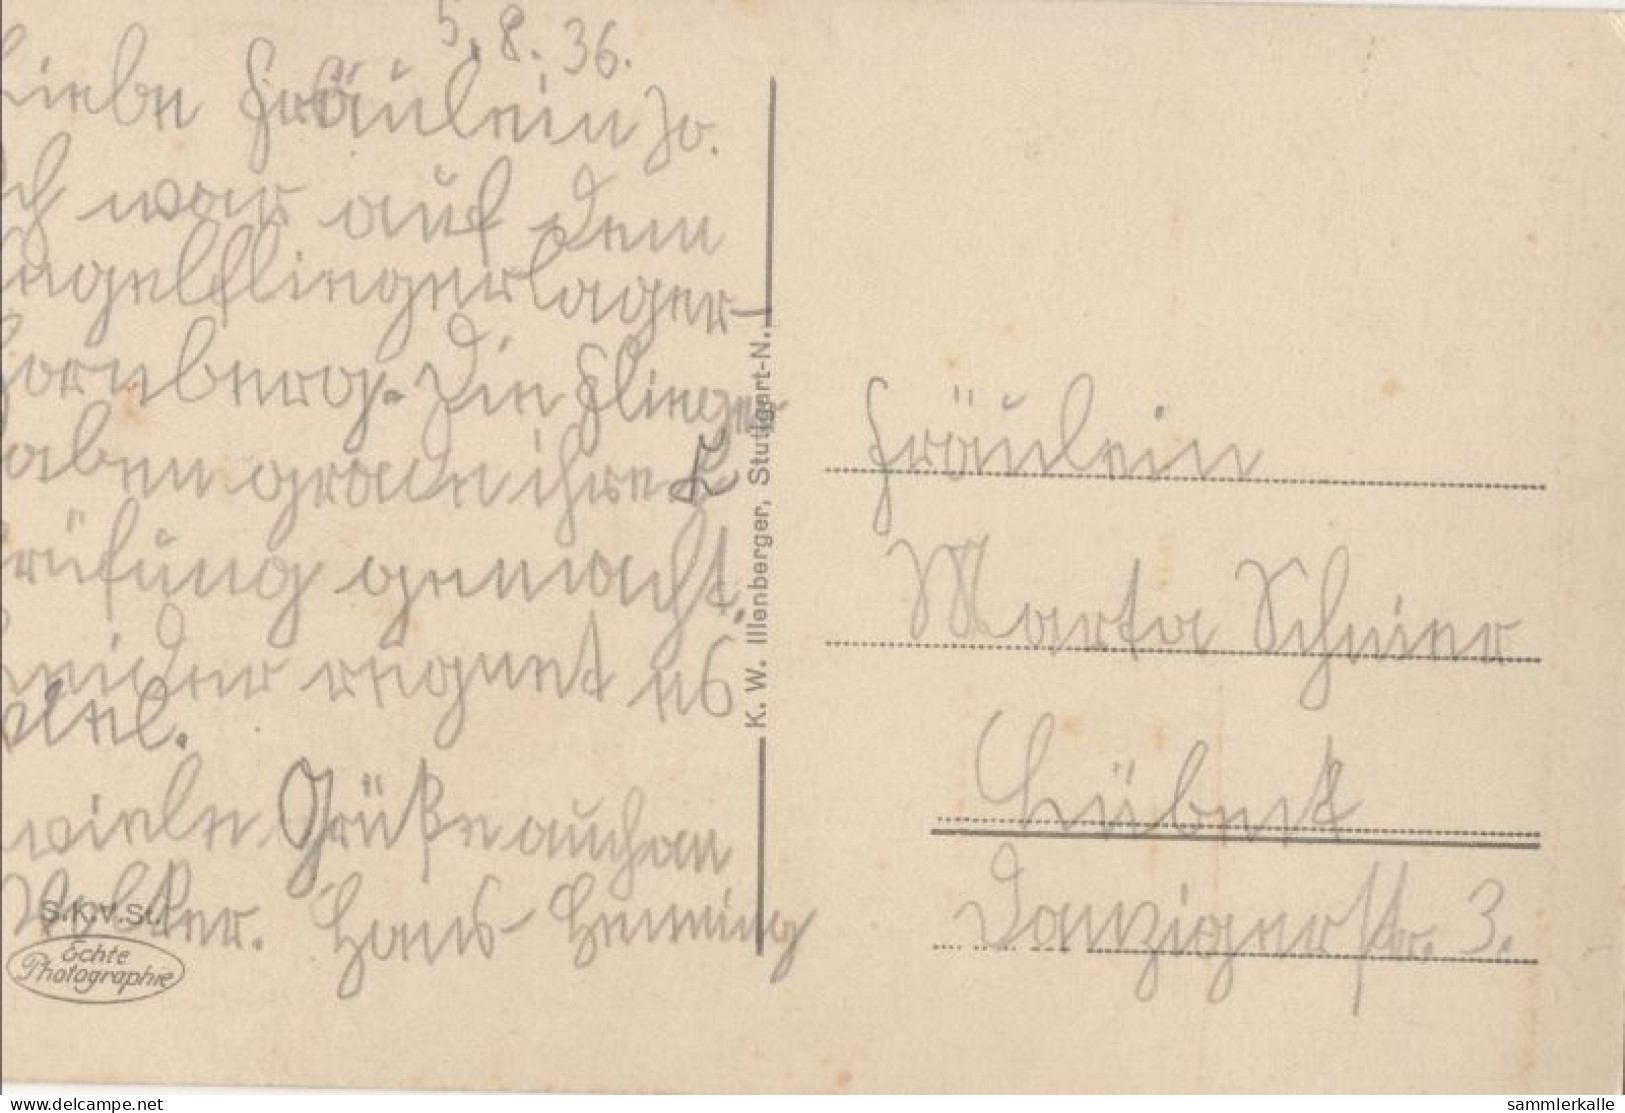 5.8.36.
Liebe Fräulein Jo.
Ich war auf dem
Segelfliegerlager-
Hornberg. Die Flieger
haben grade ihre
Prüfung gemacht.
Leider regnet es
viel.
viele Grüße auch an
Volker. Hans Henning
S.K.V.St.
Echte
Photographie
K. W. Illenberger, Stuttgart-N.
Fräulein
Marta Schnier
Lübeck
Danzigerstr. 3.
www.delcampe.net
sammlerkalle